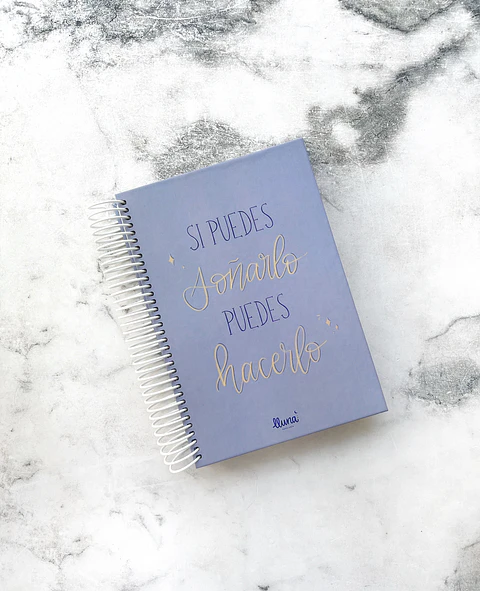 SI PUEDES
soñarlo
PUEDES
hacerlo
lluna